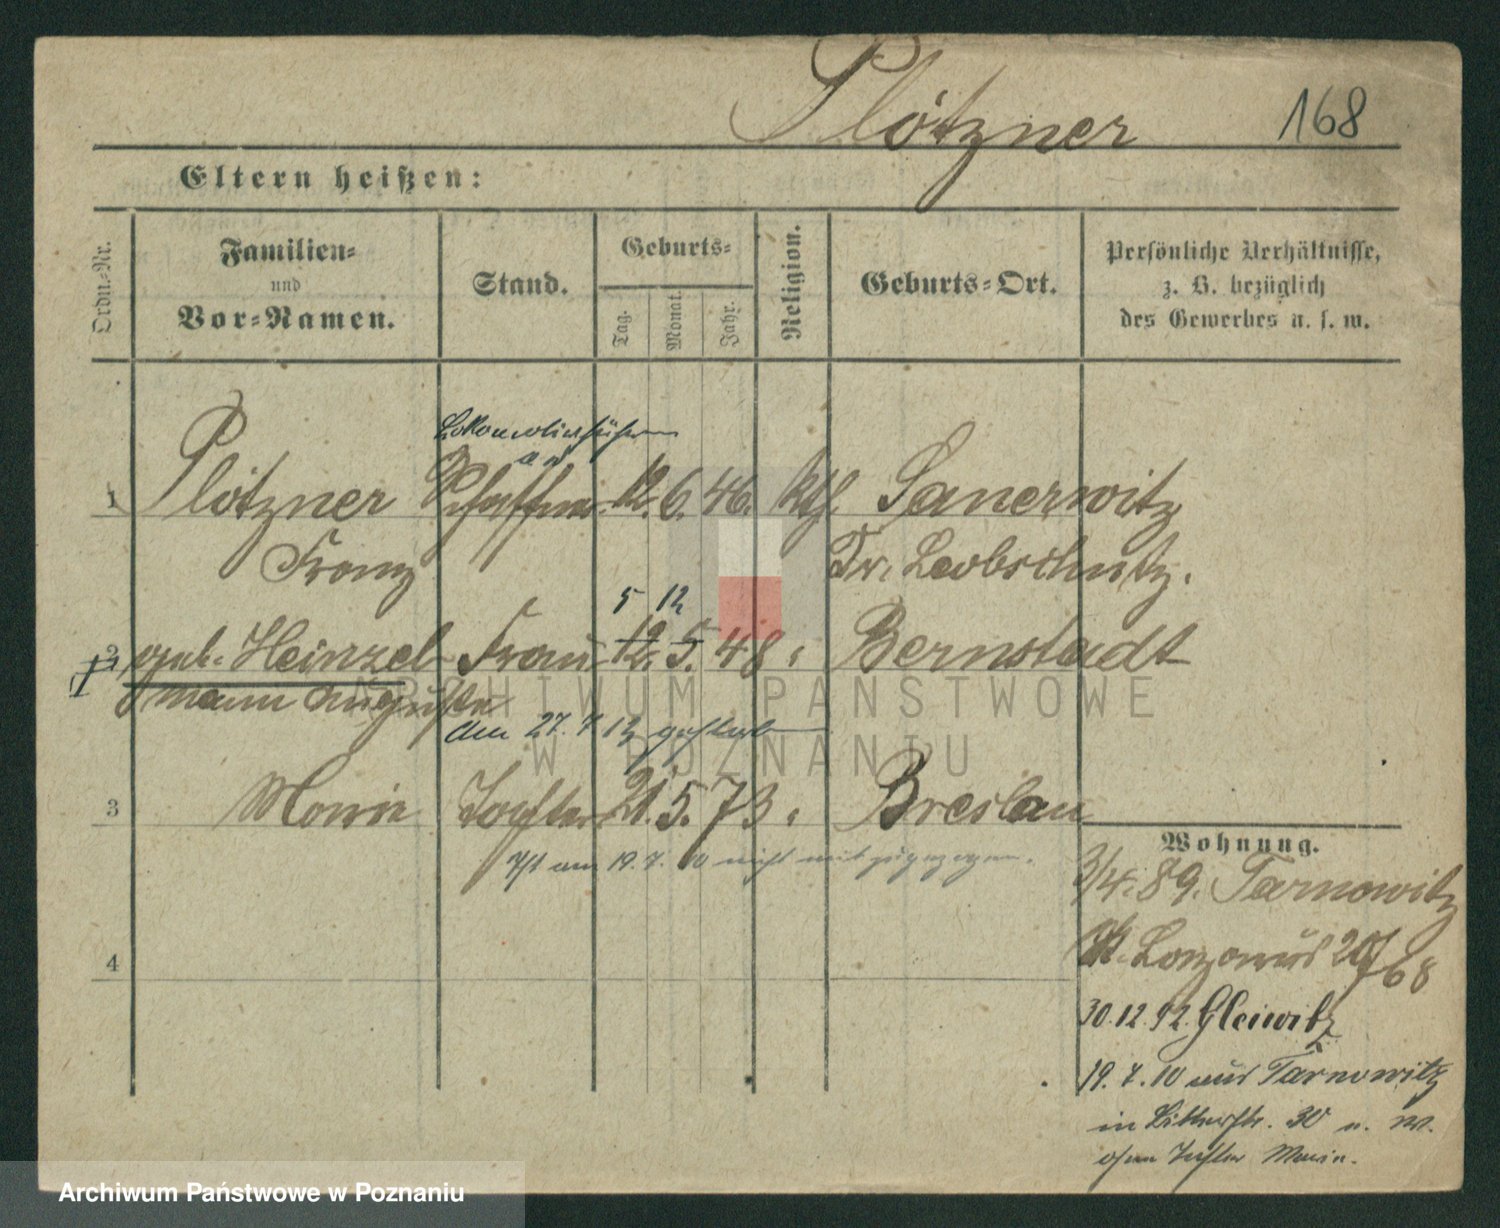 Plötzner 168
Eltern heißen:
Ordn.-Nr.
Familien-
und
Vor-Namen.
Stand.
Geburts-
Tag.
Monat.
Jahr.
Religion.
Geburts-Ort.
Persönliche Verhältnisse,
z. B. bezüglich
des Gewerbes u. s. w.
Lokomotivführer
a D
1 Plötzner Schaffner 12. 6. 46. kth. Sauerwitz
Franz Kr. Leobschütz.
5 12
2 geb. Heinzel- Frau 12. 5. 48 Bernstadt
mann Auguste
am 27. 7 12 gestorben
3 Marie Tochter 21. 5. 73 Breslau
Ist am 19. 7. 10 nicht mit zugezogen.
4
Wohnung.
3/4. 89. Tarnowitz
St. Lazarus 20/68
30.12.92. Gleiwitz
19. 7. 10 aus Tarnowitz
in 30 u. W.
ohne Tochter Marie.
ARCHIWUM PAŃSTWOWE
W POZNANIU
Archiwum Państwowe w Poznaniu